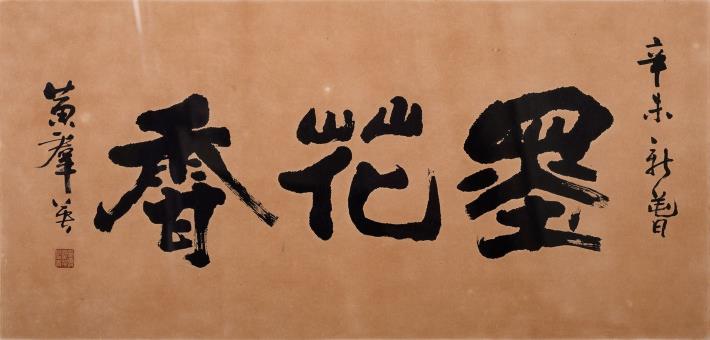 辛未新春
墨花香
黄群英